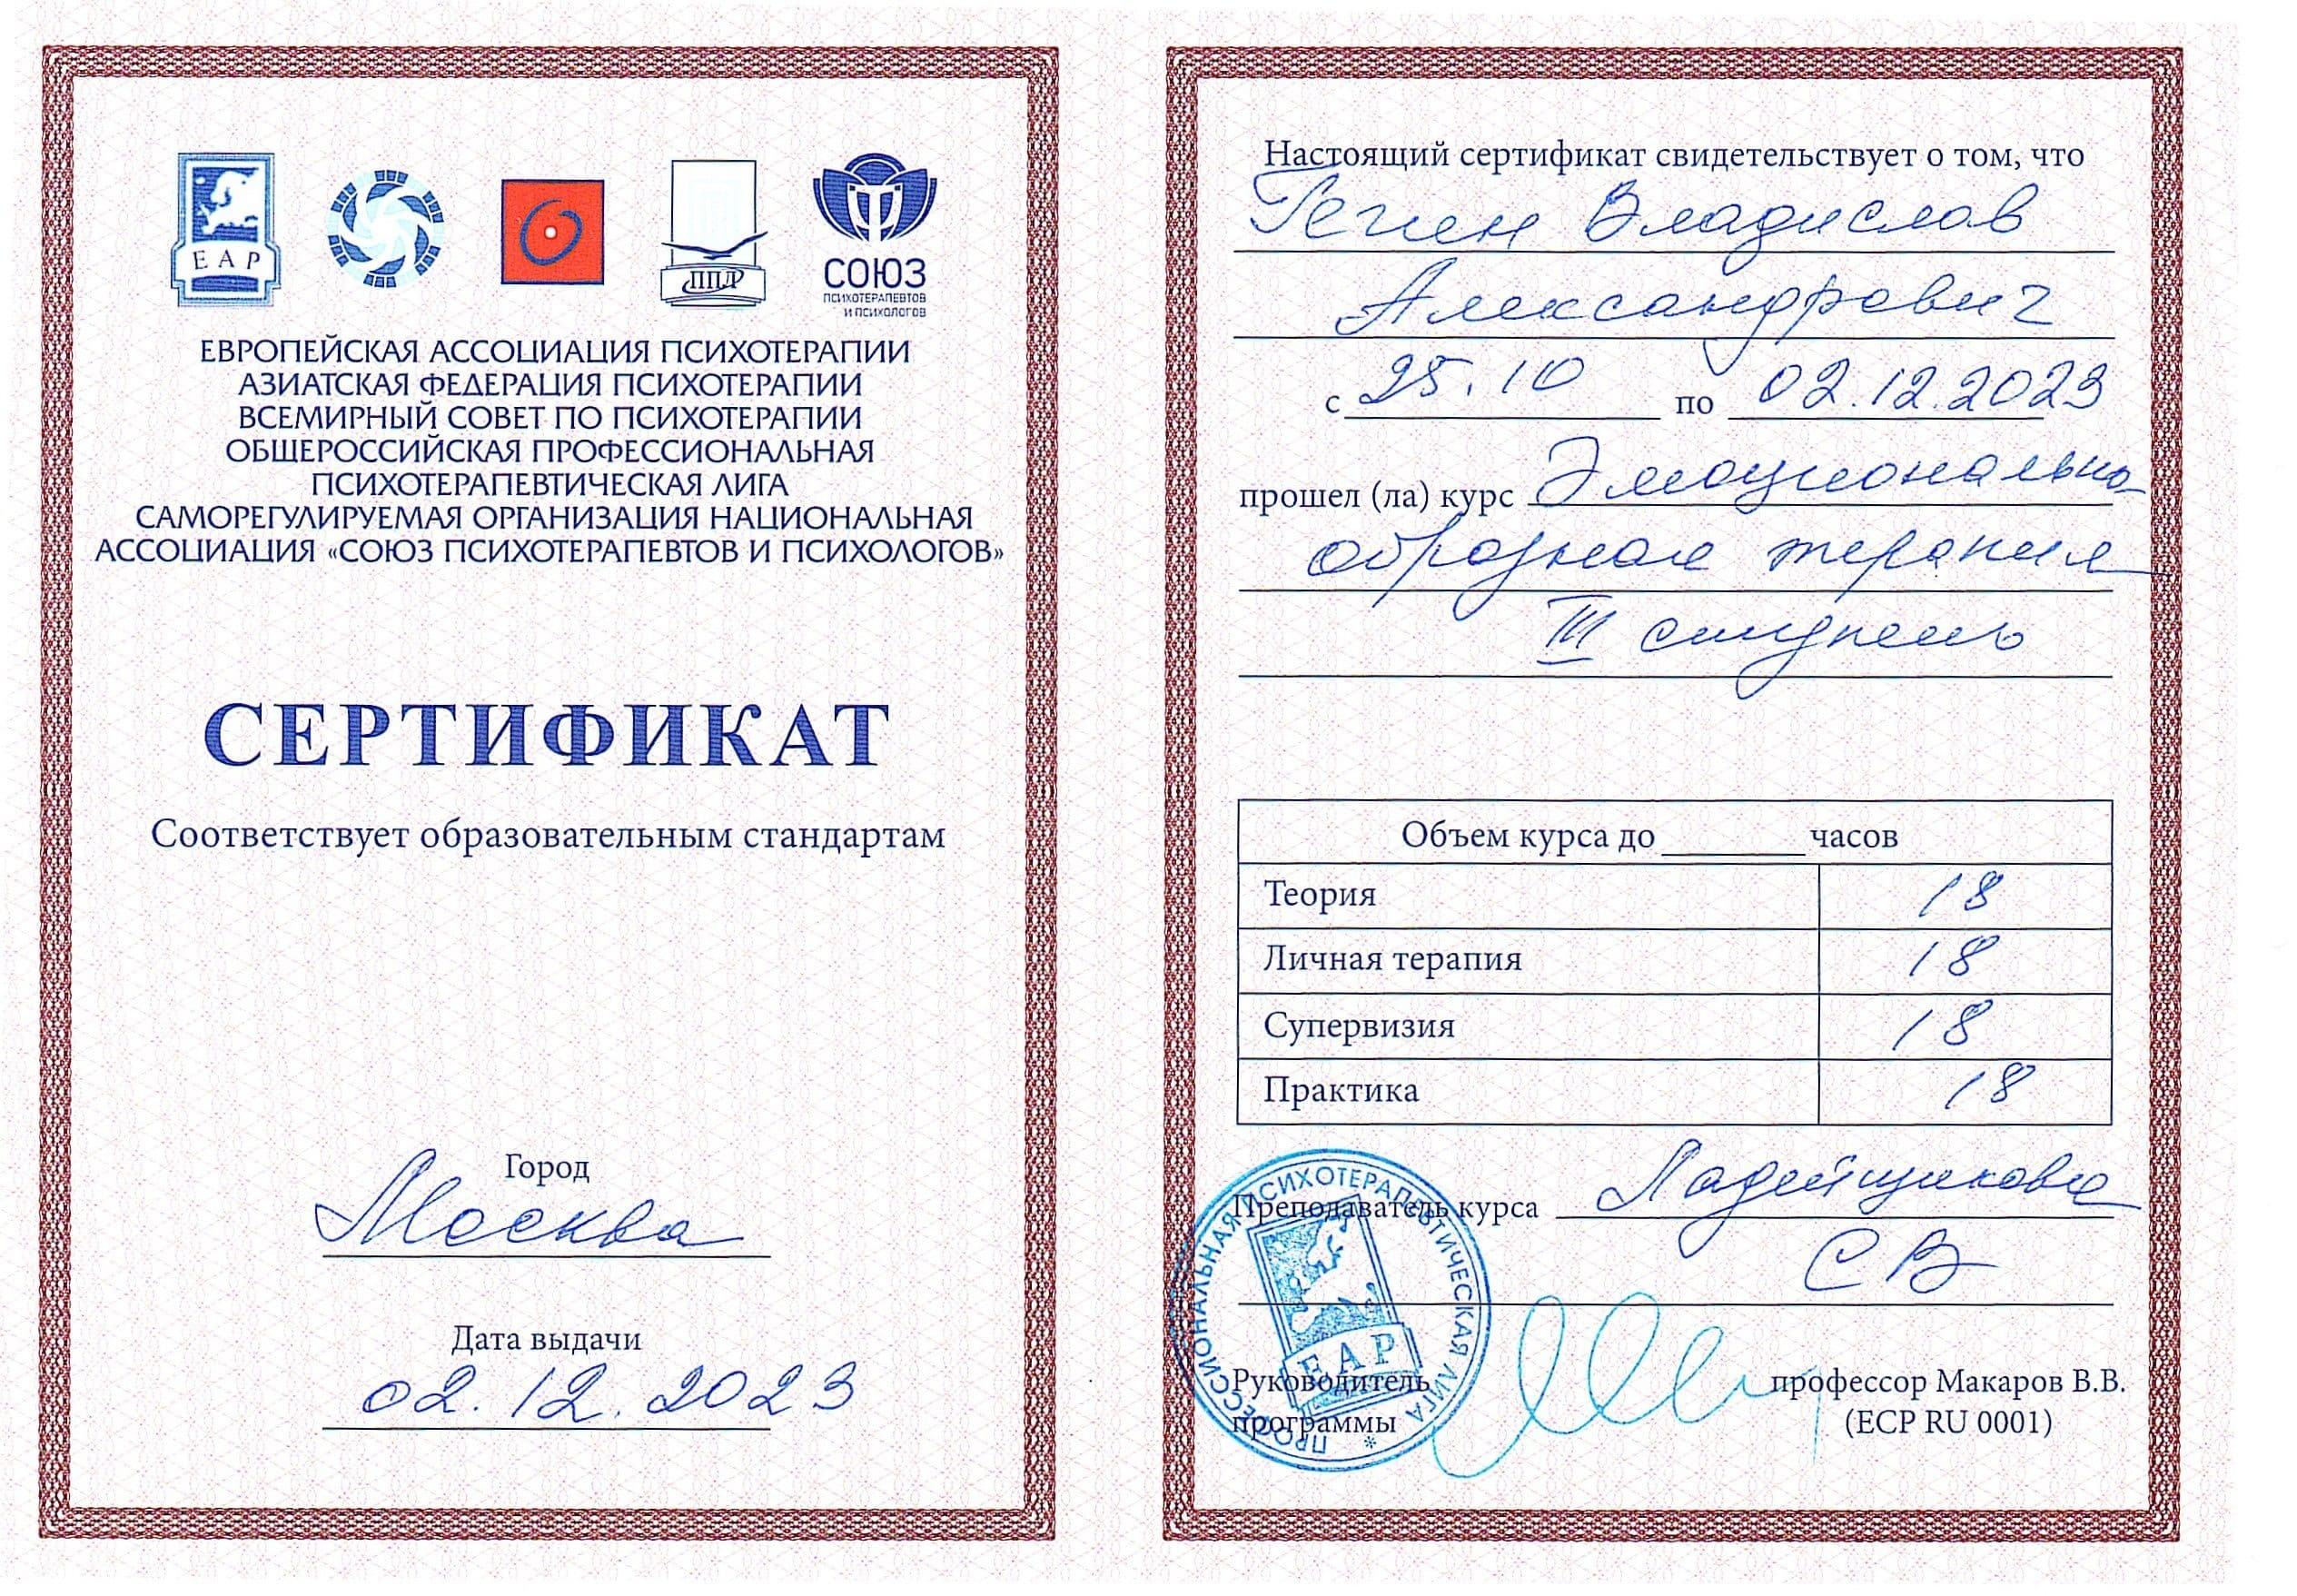 ЕАР
ППЛ
СОЮЗ
ПСИХОТЕРАПЕВТОВ
И ПСИХОЛОГОВ
ЕВРОПЕЙСКАЯ АССОЦИАЦИЯ ПСИХОТЕРАПИИ
АЗИАТСКАЯ ФЕДЕРАЦИЯ ПСИХОТЕРАПИИ
ВСЕМИРНЫЙ СОВЕТ ПО ПСИХОТЕРАПИИ
ОБЩЕРОССИЙСКАЯ ПРОФЕССИОНАЛЬНАЯ
ПСИХОТЕРАПЕВТИЧЕСКАЯ ЛИГА
САМОРЕГУЛИРУЕМАЯ ОРГАНИЗАЦИЯ НАЦИОНАЛЬНАЯ
АССОЦИАЦИЯ «СОЮЗ ПСИХОТЕРАПЕВТОВ И ПСИХОЛОГОВ»
СЕРТИФИКАТ
Соответствует образовательным стандартам
Город
Москва
Дата выдачи
02.12.2023
Настоящий сертификат свидетельствует о том, что
Владислав
Александрович
с 25.10 по 02.12.2023
прошел (ла) курс Эмоционально-
образная терапия
III ступень
Объем курса до ______ часов
Теория 18
Личная терапия 18
Супервизия 18
Практика 18
Преподаватель курса Ладейщикова
С В
Руководитель
программы
профессор Макаров В.В.
(ECP RU 0001)
ПРОФЕССИОНАЛЬНАЯ ПСИХОТЕРАПЕВТИЧЕСКАЯ ЛИГА *
ЕАР